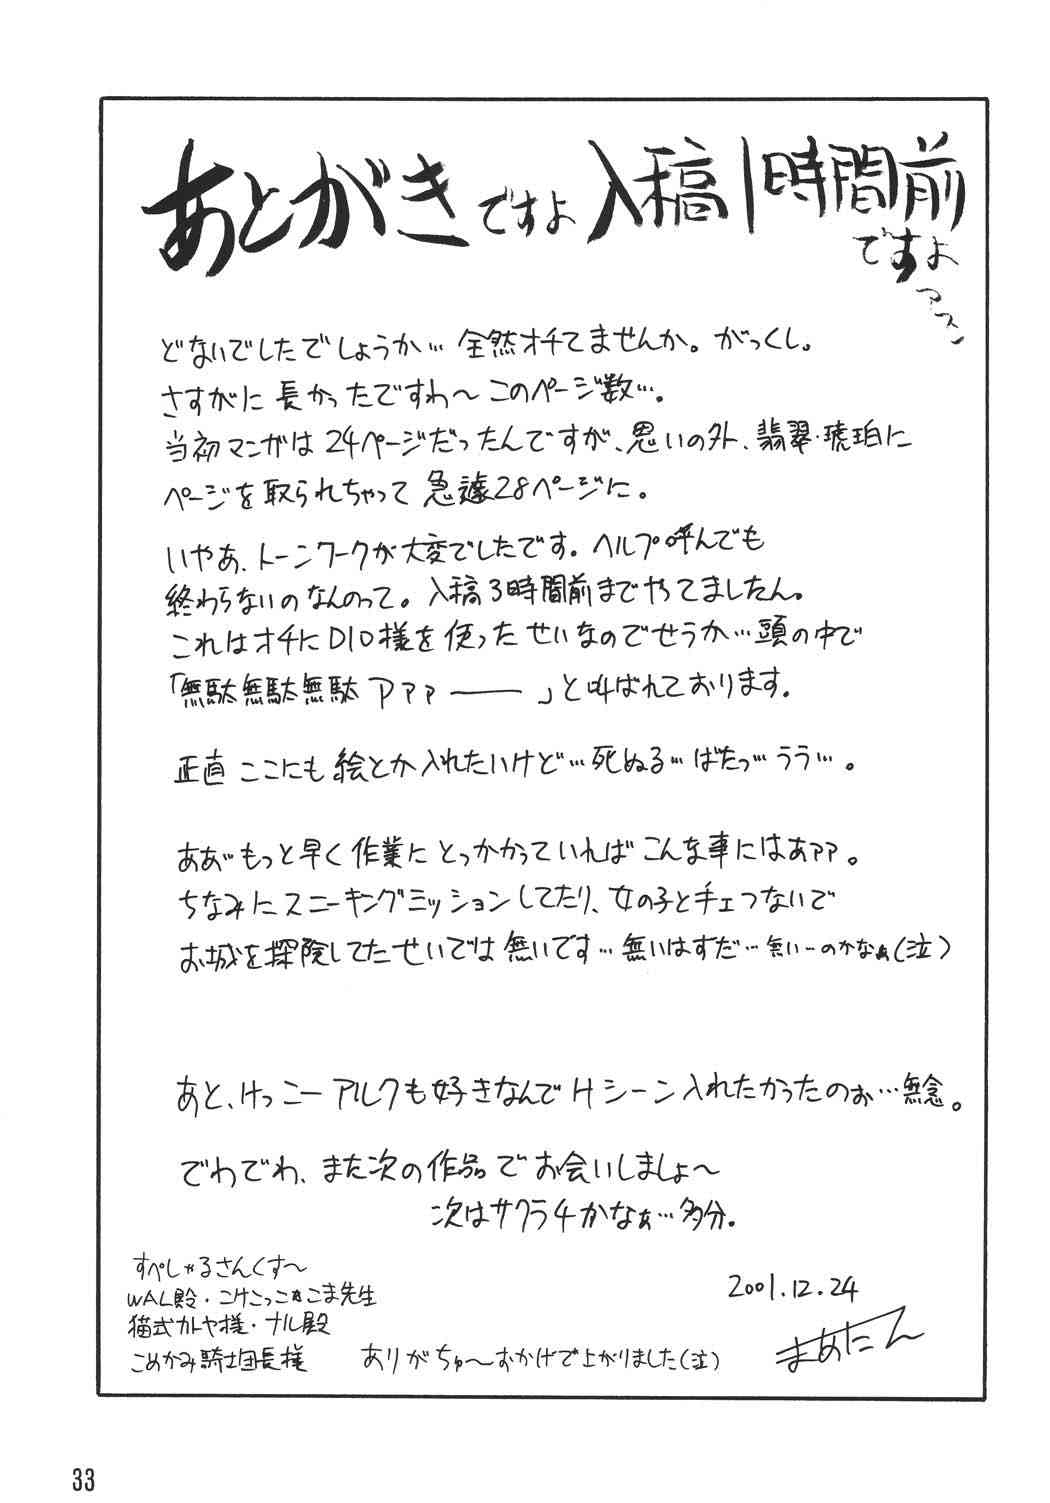 あとがきですよ 入稿1時間前
ですよ
どないでしたでしょうか… 全然オチてませんか。がっくし。
さすがに長かったですわ〜 このページ数…。
当初マンガは24ページだったんですが、思いの外、翡翠・琥珀に
ページを取られちゃって急遽28ページに。
いやあ、トーンワークが大変でしたです。ヘルプ呼んでも
終わらないのなんのって。入稿3時間前までやってましたん。
これはオチにDIO様を使ったせいなのでせうか…頭の中で
「無駄無駄無駄アァァ――」と叫ばれております。
正直ここにも絵とか入れたいけど…死ぬる…ばたっ…うう…。
ああ゛もっと早く作業にとっかかっていればこんな事にはあァァ。
ちなみにスニーキングミッションしてたり、女の子と手ェつないで
お城を探険してたせいでは無いです…無いはずだ…無い…のかなぁ(泣)
あと、けっこーアルクも好きなんでHシーン入れたかったのぉ…無念。
でわでわ、また次の作品でお会いしましょ〜
次はサクラ4かなぁ…多分。
すぺしゃるさんくす〜
WAL殿・こけこっこ こま先生
猫式カトヤ様・ナル殿
こめかみ騎士団長様 ありがちゅ〜おかげで上がりました(泣)
2001.12.24
まあたん
33